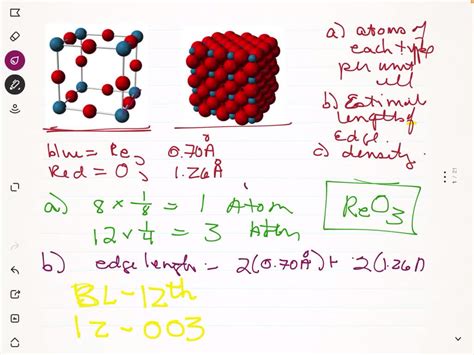 a) atoms of
each type
per unit
cell
b) Estimate
lengths of
edge.
c) density.
blue = Re, 0.70Å
Red = O, 1.26Å
a) 8 × 1/8 = 1 Atom
12 × 1/4 = 3 Atom
ReO3
b) edge length = 2(0.70Å) + 2(1.26
BL-12th
12-003